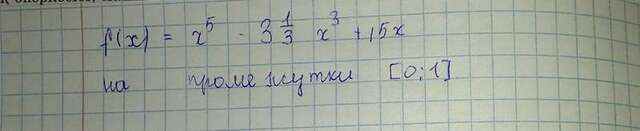 f(x) = x⁵ - 3 1/3 x³ + 15x
на промежутки [0;1]